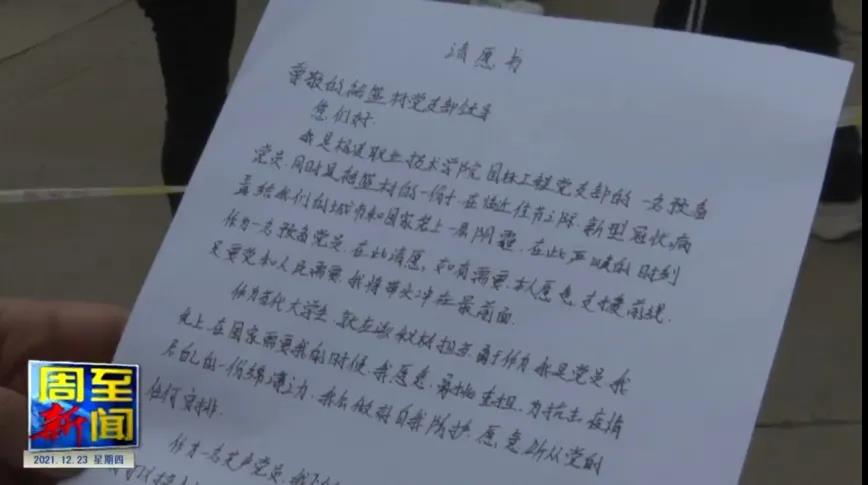 请愿书
尊敬的 村党支部
您们好:
我是杨凌职业技术学院园林工程党支部的一名预备
党员.同时是 村的一份子.在临近佳节之际.新型冠状病
毒给我们的城市和国家笼上一层阴霾.在此严峻的时刻
作为一名预备党员.在此请愿,如有需要.本人愿意支援前线.
只要党和人民需要.我将带头冲在最前面.
作为当代大学生.就应该积极担当.勇于作为.我是党员我
先上.在国家需要我的时候.我愿意.勇担重担.为抗击疫情
尽自己的一份绵薄之力.我会做好自我防护.愿意听从党的
任何安排.
作为一名共产党员.我
周至新闻
2021.12.23 星期四